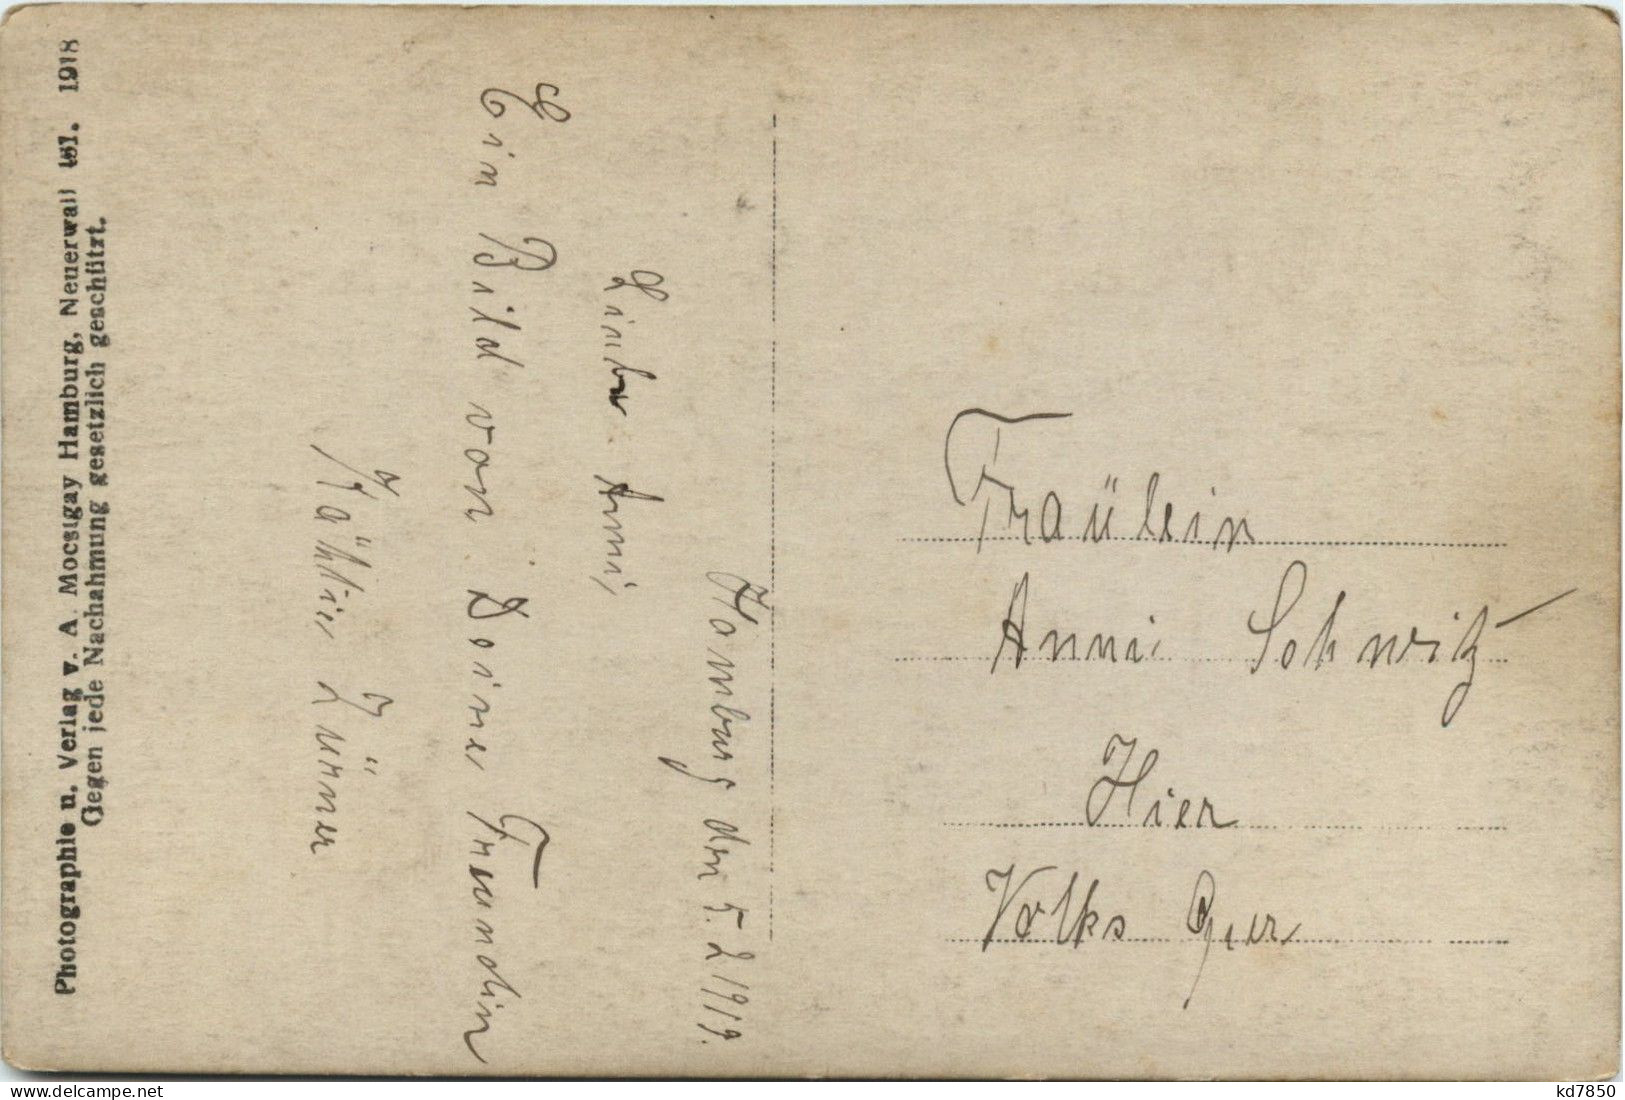 Photographie u. Verlag v. A. Mocsigay Hamburg, Neuerwall 1918
Gegen jede Nachahmung gesetzlich geschützt.
Hamburg den 5. 2 1919.
Liebe Anni,
Ein Bild von Deiner Freundin
Zürner
Fräulein
Anni Schwitz
Hier
Volks
www.delcampe.net
kd7850